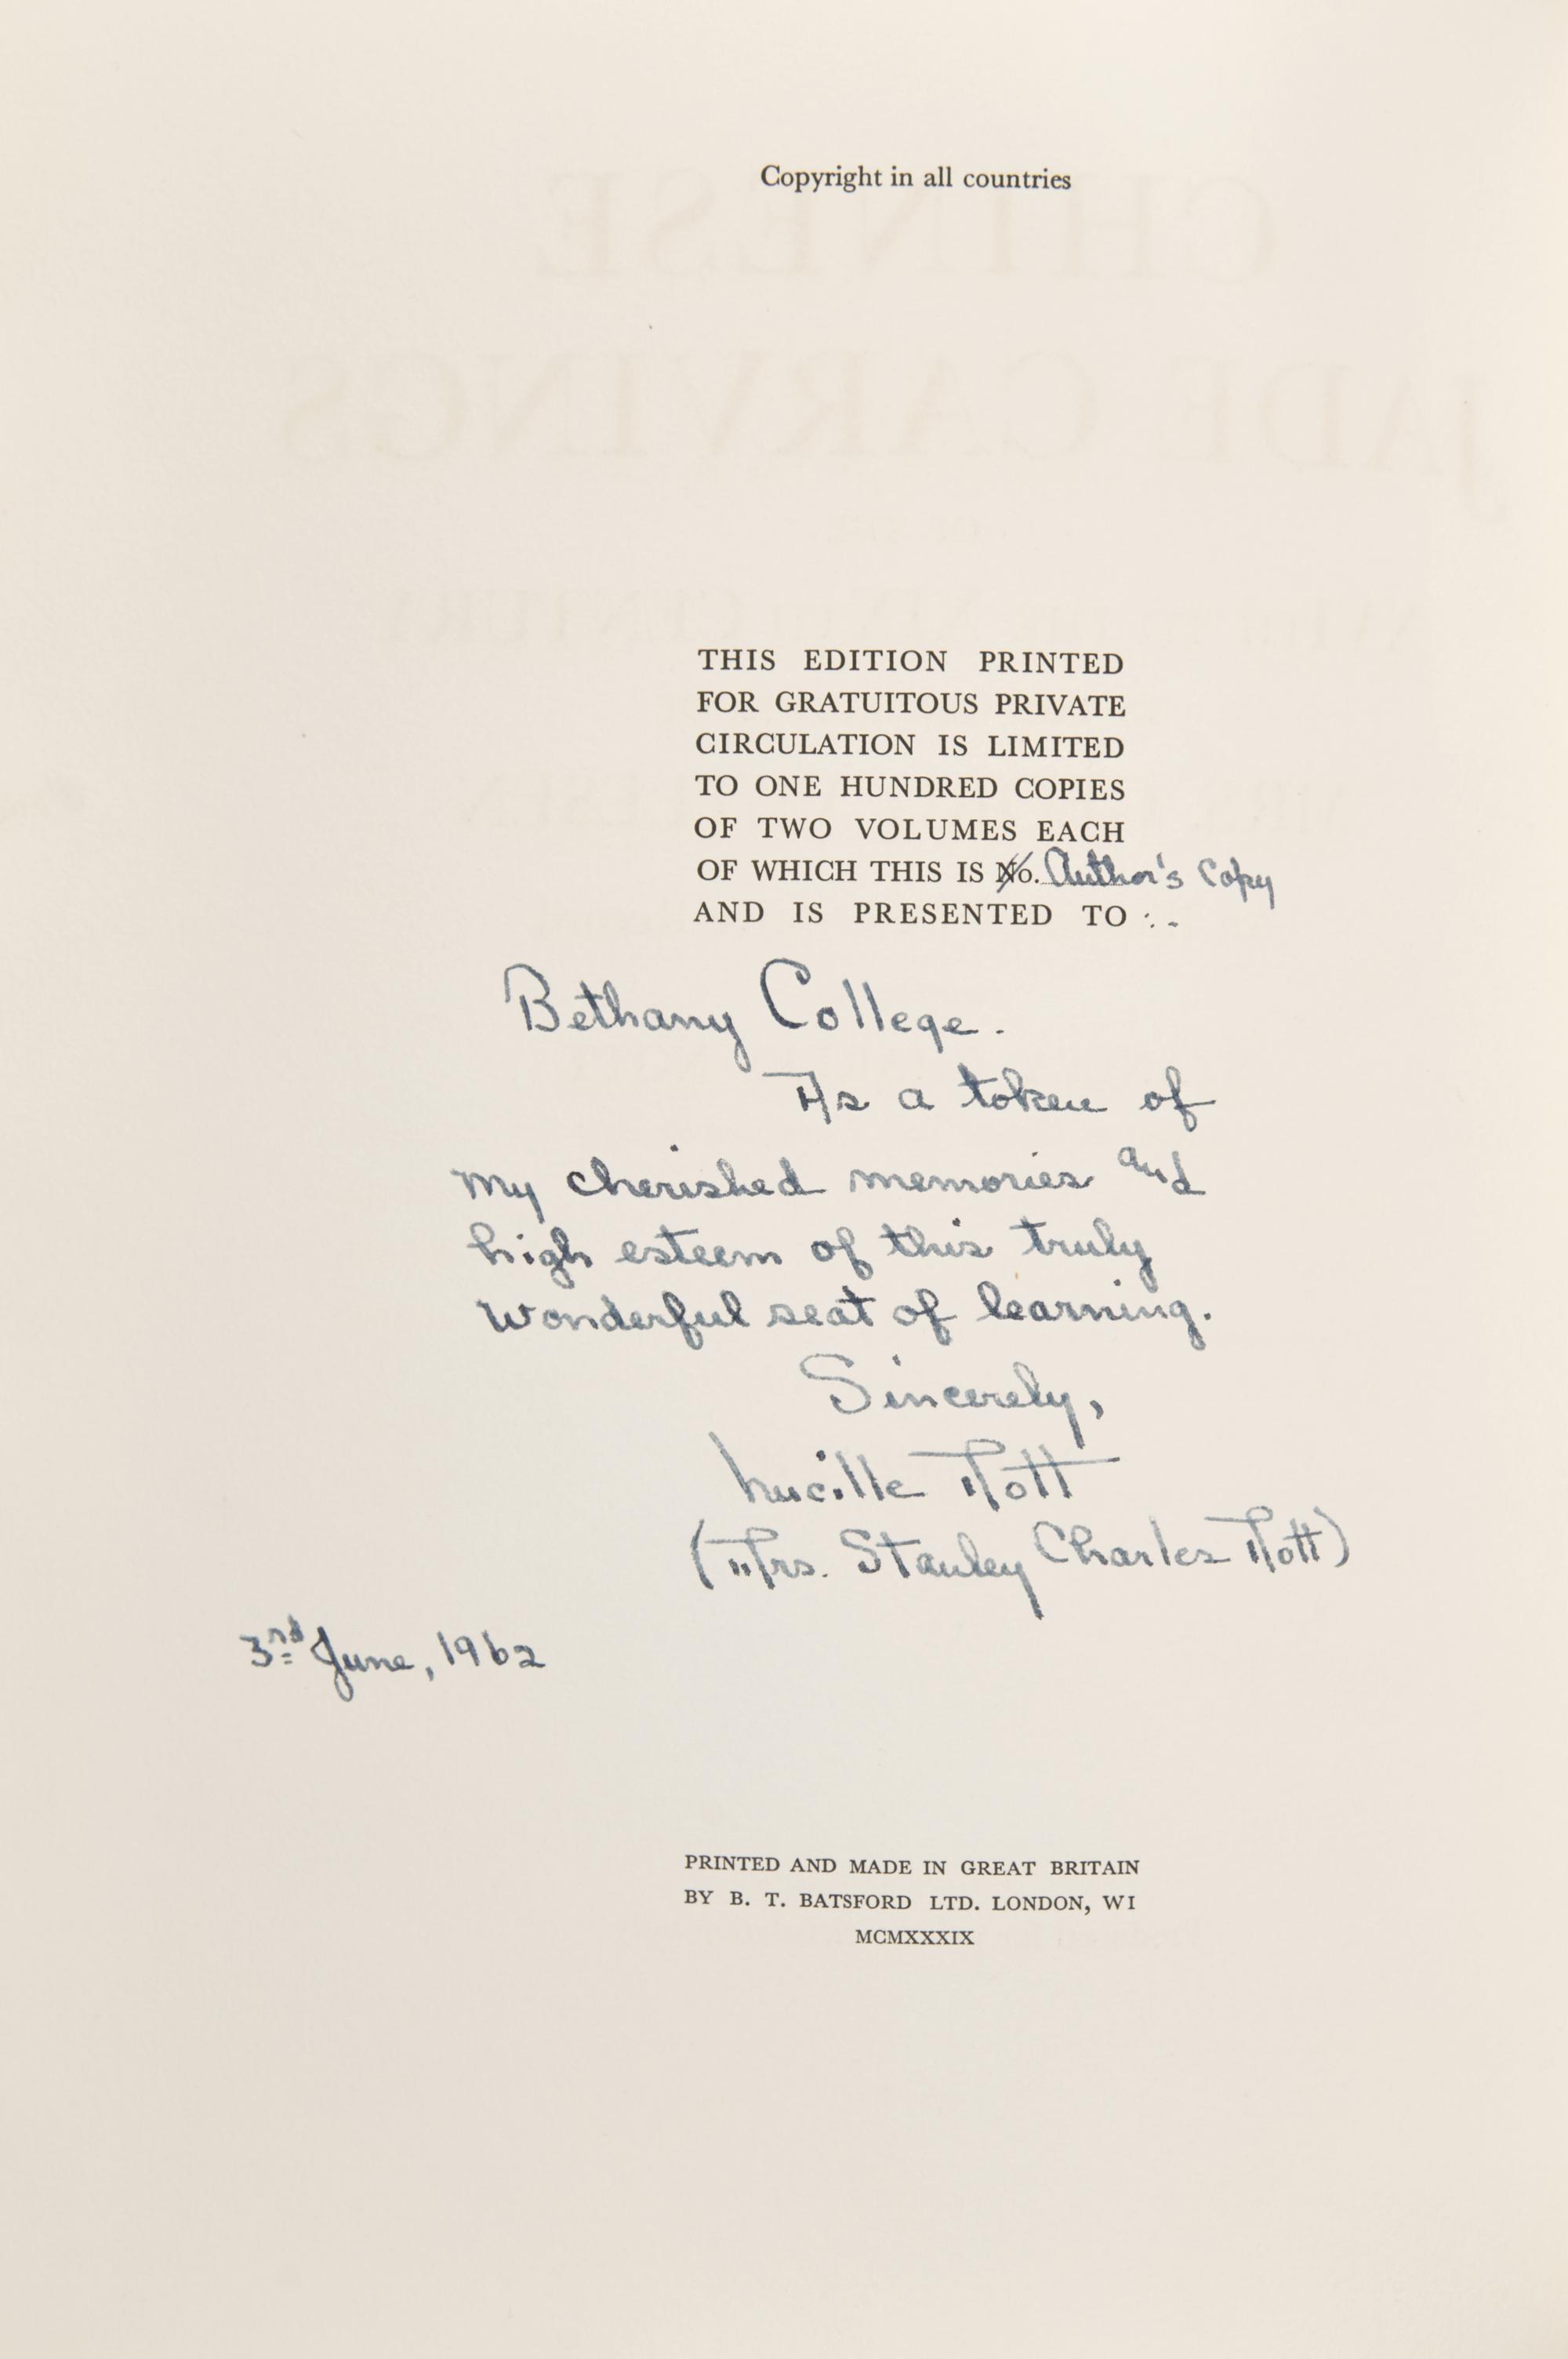 Copyright in all countries
THIS EDITION PRINTED
FOR GRATUITOUS PRIVATE
CIRCULATION IS LIMITED
TO ONE HUNDRED COPIES
OF TWO VOLUMES EACH
OF WHICH THIS IS No. Author's Copy
AND IS PRESENTED TO :-
Bethany College.
As a token of
my cherished memories and
high esteem of this truly
wonderful seat of learning.
Sincerely,
Lucille Nott
(Mrs. Stanley Charles Nott)
3rd June, 1962
PRINTED AND MADE IN GREAT BRITAIN
BY B. T. BATSFORD LTD. LONDON, W1
MCMXXXIX